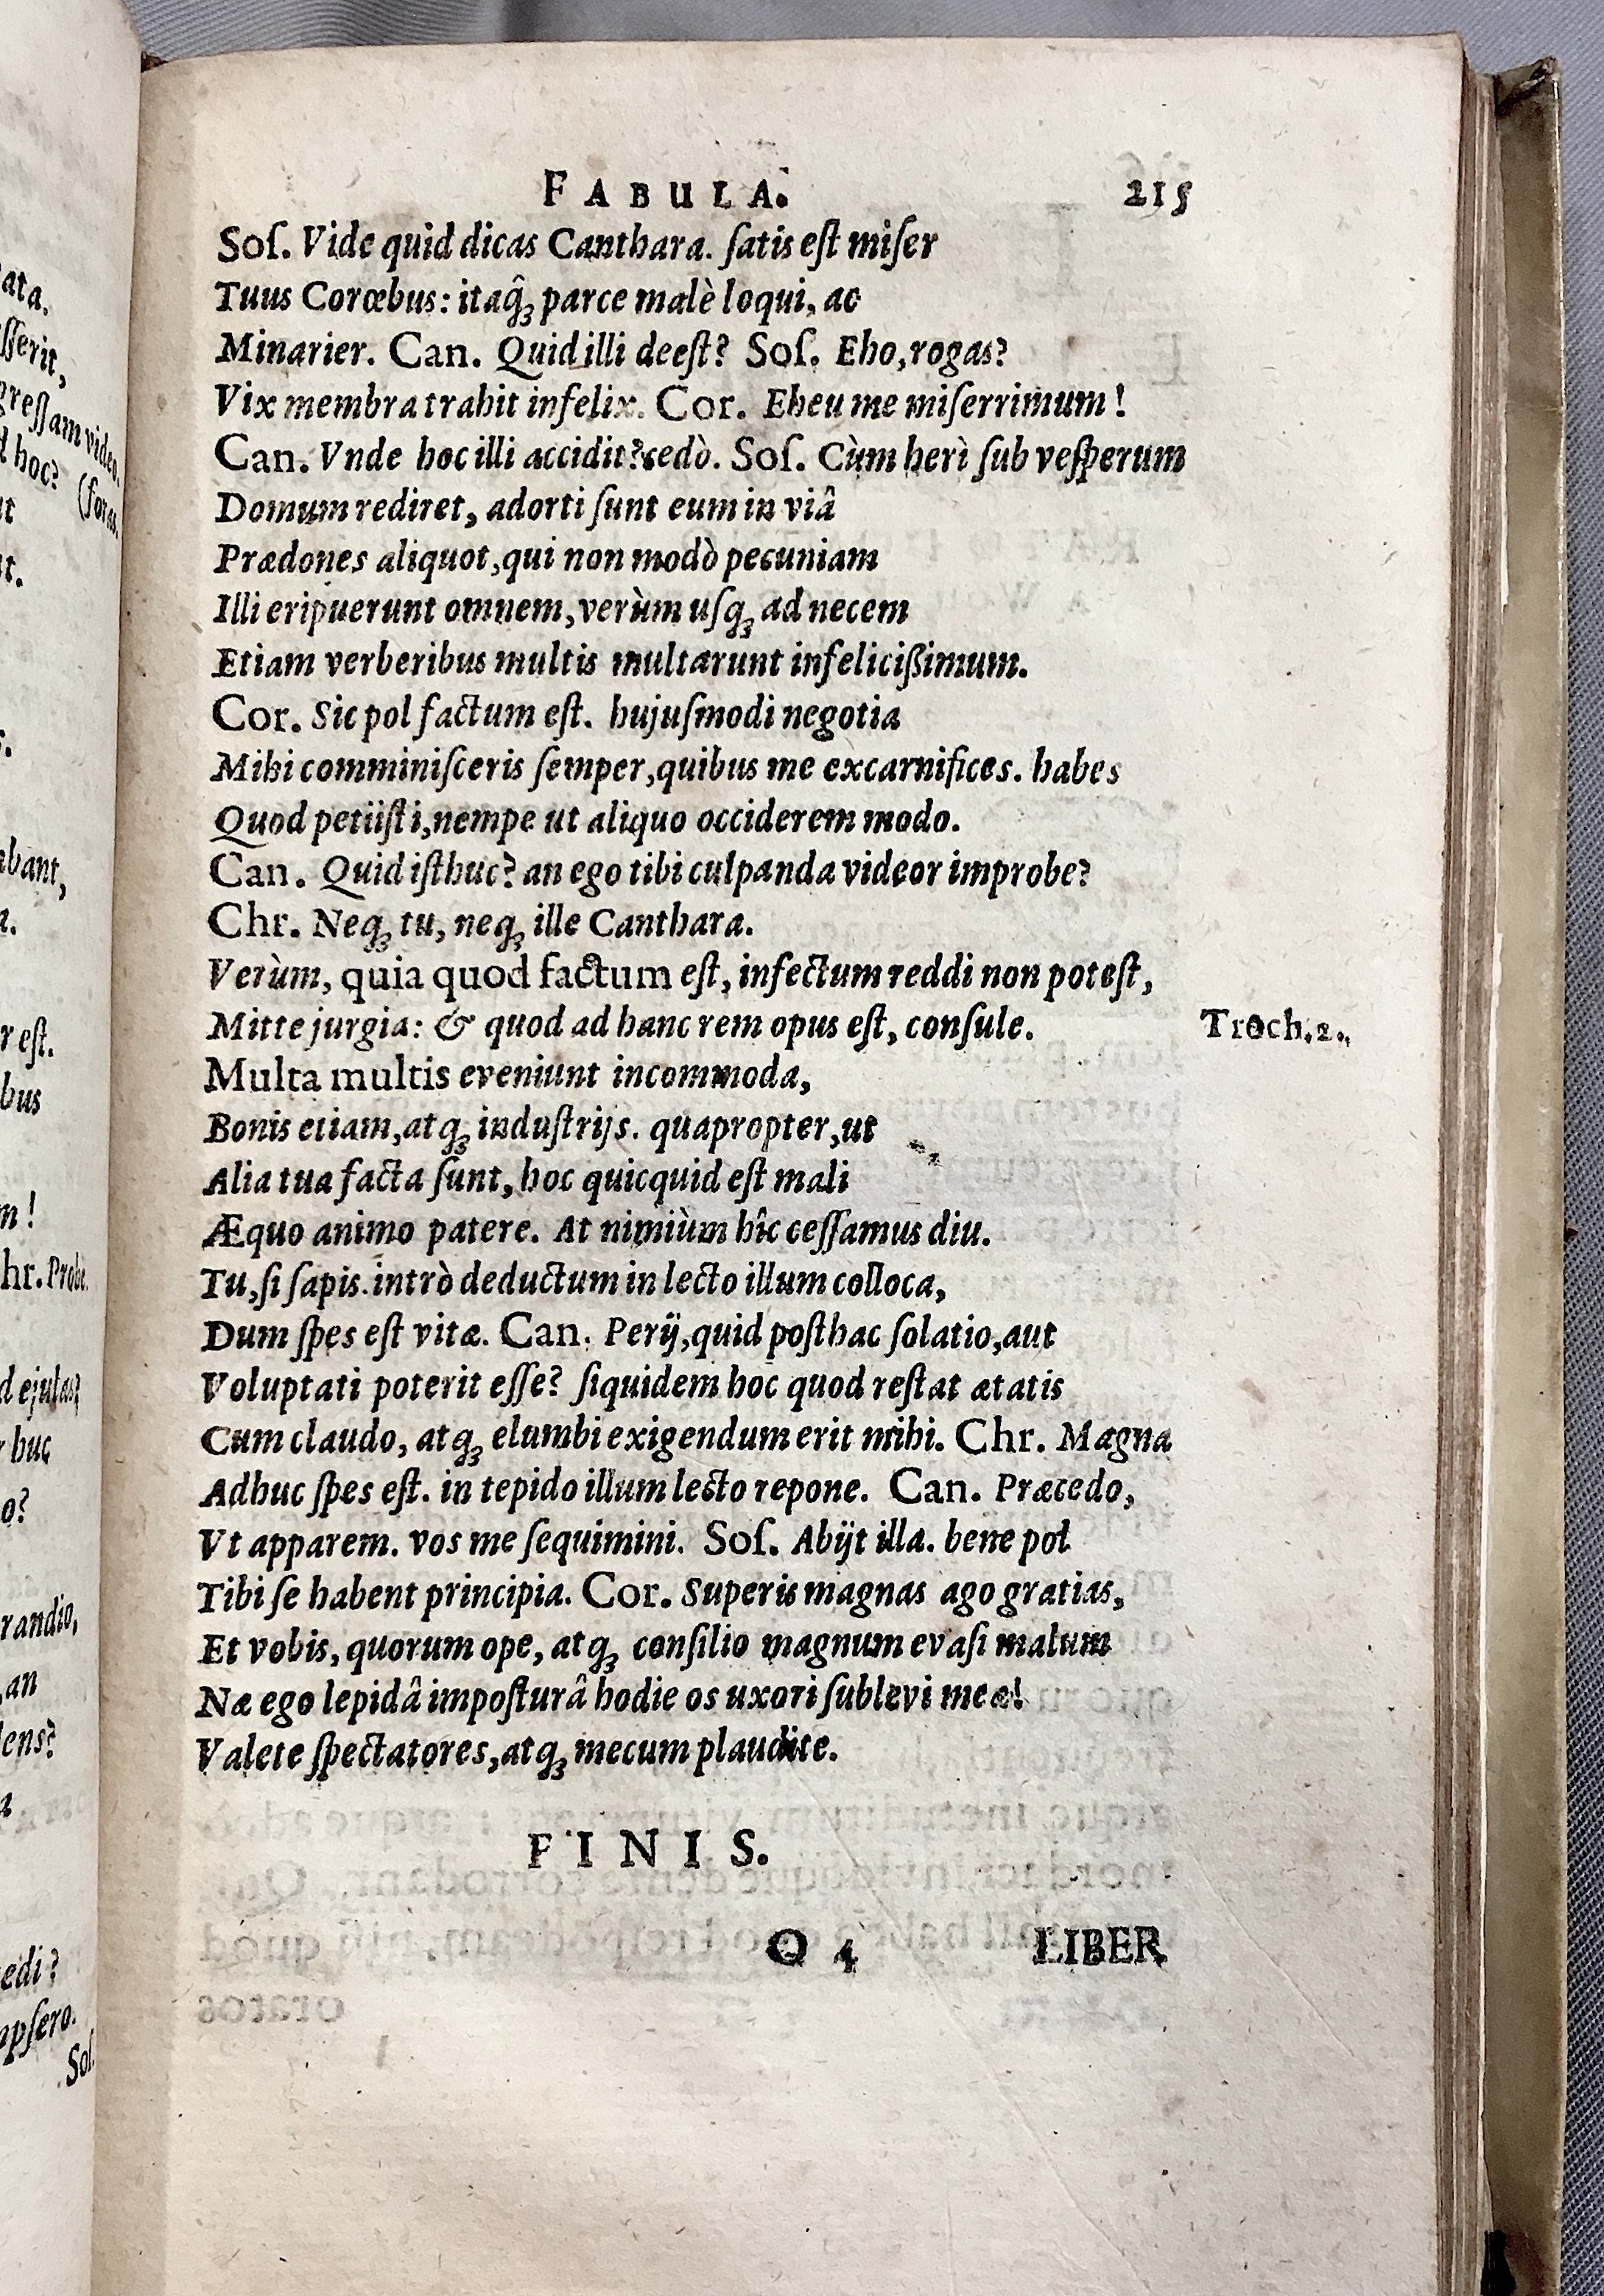 FABULA. 215
Soſ. Vide quid dicas Canthara. ſatis eſt miſer
Tuus Corœbus: itaq́ꝫ parce malè loqui, ac
Minarier. Can. Quid illi deeſt? Soſ. Eho, rogas?
Vix membra trahit infelix. Cor. Eheu me miſerrimum!
Can. Vnde hoc illi accidit? cedò. Soſ. Cùm herì ſub veſperum
Domum rediret, adorti ſunt eum in viâ
Prædones aliquot, qui non modò pecuniam
Illi eripuerunt omnem, verùm uſqꝫ ad necem
Etiam verberibus multis multarunt infelicißimum.
Cor. Sic pol factum eſt. hujuſmodi negotia
Mihi comminiſceris ſemper, quibus me excarnifices. habes
Quod petiiſti, nempe ut aliquo occiderem modo.
Can. Quid iſthuc? an ego tibi culpanda videor improbe?
Chr. Neqꝫ tu, neqꝫ ille Canthara.
Verùm, quia quod factum eſt, infectum reddi non poteſt,
Mitte jurgia: & quod ad hanc rem opus eſt, conſule. Troch. 2.
Multa multis eveniunt incommoda,
Bonis etiam, atqꝫ induſtrijs. quapropter, ut
Alia tua facta ſunt, hoc quicquid eſt mali
Æquo animo patere. At nimiùm hîc ceſſamus diu.
Tu, ſi ſapis. intrò deductum in lecto illum colloca,
Dum ſpes eſt vitæ. Can. Perij, quid poſthac ſolatio, aut
Voluptati poterit eſſe? ſiquidem hoc quod reſtat ætatis
Cum claudo, atqꝫ elumbi exigendum erit mihi. Chr. Magna
Adhuc ſpes eſt. in tepido illum lecto repone. Can. Præcedo,
Vt apparem. vos me ſequimini. Soſ. Abijt illa. bene pol
Tibi ſe habent principia. Cor. Superis magnas ago gratias,
Et vobis, quorum ope, atqꝫ conſilio magnum evaſi malum
Næ ego lepidâ impoſturâ hodie os uxori ſublevi meæ!
Valete ſpectatores, atqꝫ mecum plaudite.
FINIS.
Q 4 LIBER